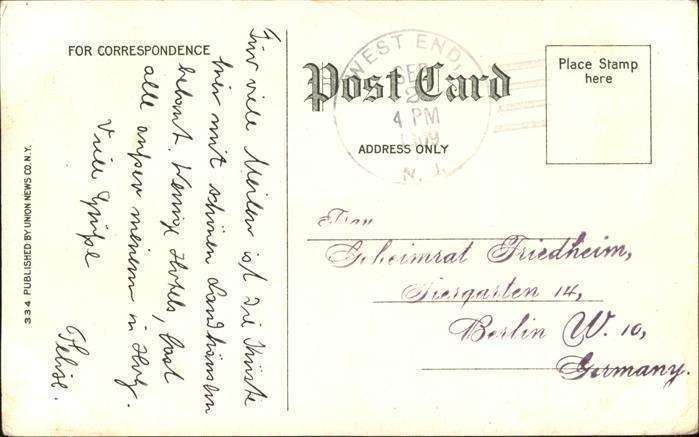 FOR CORRESPONDENCE
Für viele Meilen ist die Küste
hier mit schönen Landhäusern
bebaut. Wenige Hotels, fast
alle ausser meinem in Holz.
Viele Grüße
334 PUBLISHED BY UNION NEWS CO. N.Y.
Post Card
ADDRESS ONLY
Place Stamp
here
WEST END,
SEP
2
4 PM
1909
N. J.
Frau
Geheimrat Friedheim,
Tiergarten 14,
Berlin W. 10,
Germany.